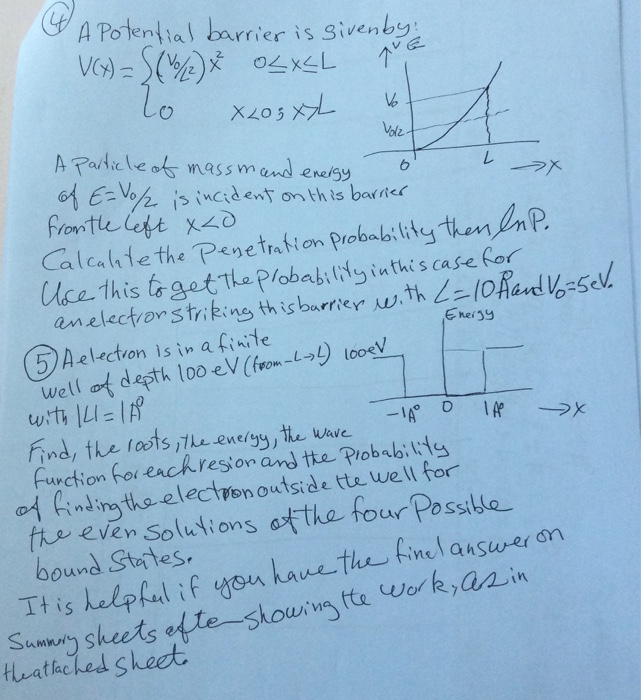 ④ A Potential barrier is given by:
V(x) = { (V₀/L²) x² 0≤x≤L
0 x<0, x>L
V E
V₀
V₀/2
0 L →x
A Particle of mass m and energy
of E=V₀/2 is incident on this barrier
from the left x<0
Calculate the Penetration probability then ln P.
Use this to get the probability in this case for
an electron striking this barrier with L=10A° and V₀=5eV.
⑤ A electron is in a finite
well of depth 100 eV (from -L→L)
with |L|=1A°
Energy
100eV
-1A° 0 1A° →x
Find, the roots, the energy, the wave
function for each resion and the Probability
of finding the electron outside the well for
the even solutions of the four Possible
bound States.
It is helpful if you have the final answer on
Summury sheets after showing the work, as in
the attached sheet.